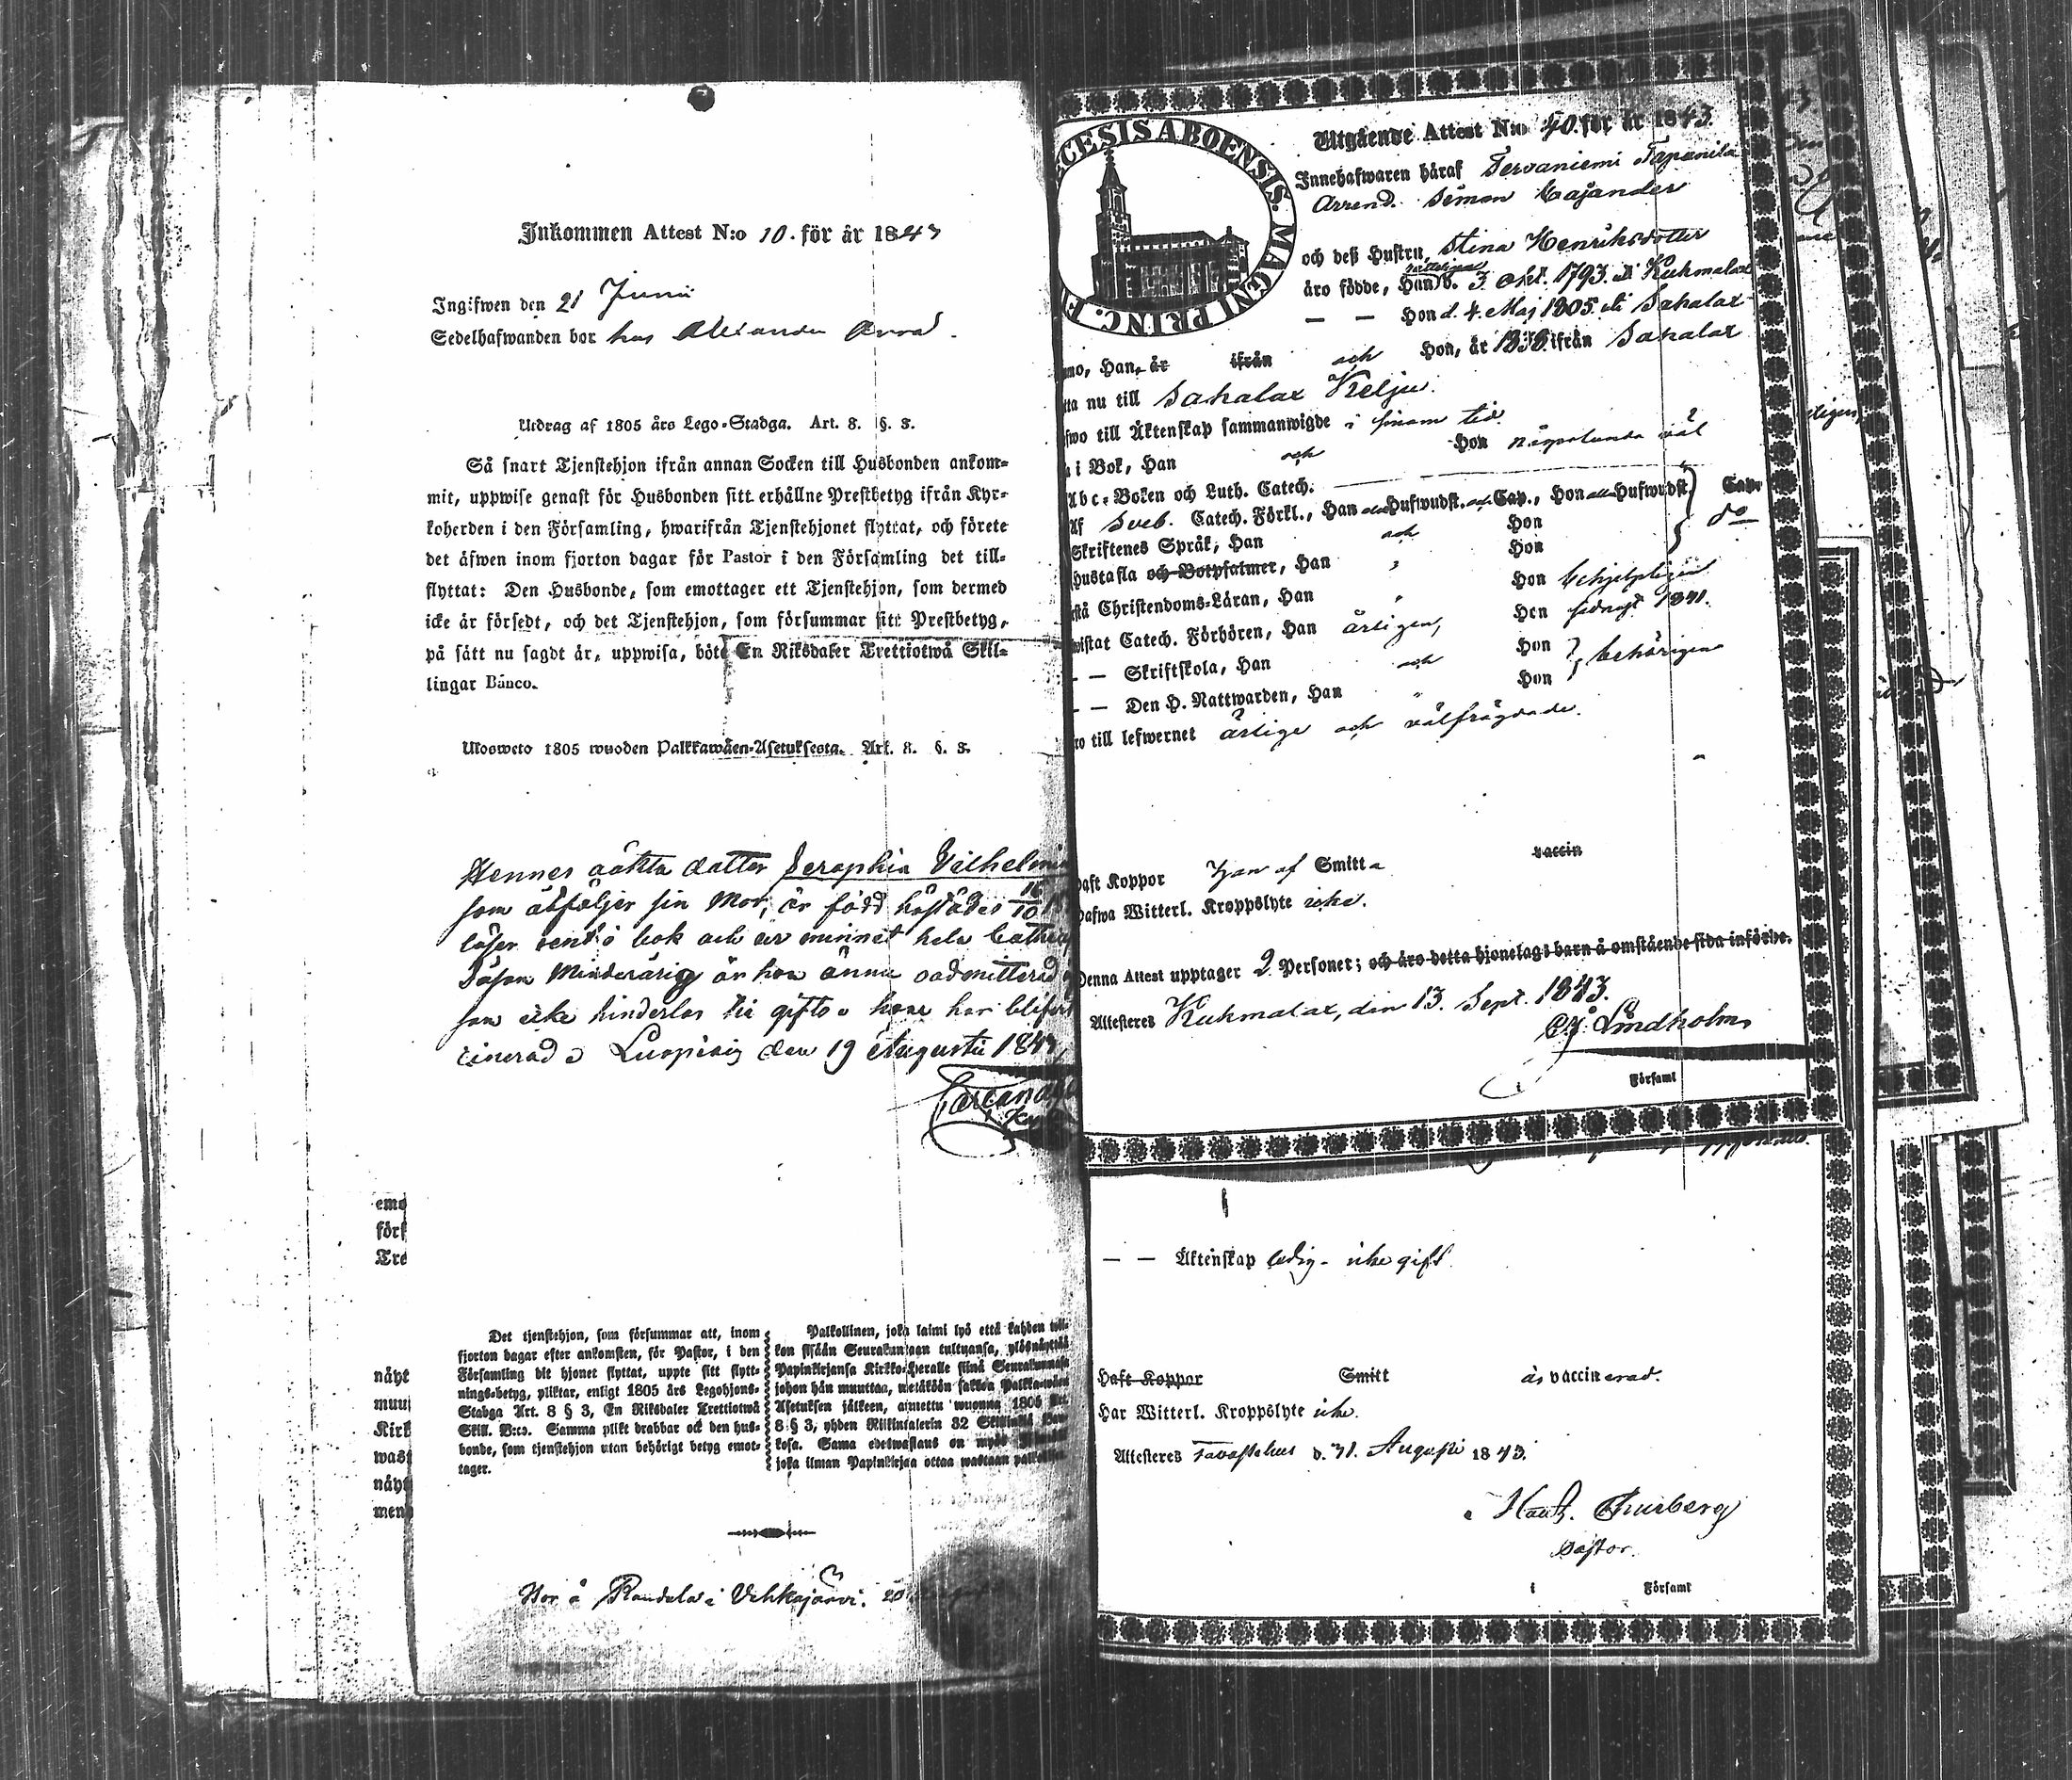 Inkommen Attest N:o 10. för år 1843
Ingifwen den 21 Junii
Sedelhafwanden bor hos
Utdrag af 1805 års Lego-Stadga. Art. 8. §. 3.
Så snart Tjenstehjon ifrån annan Socken till Husbonden ankom-
mit, uppwise genast för Husbonden sitt erhållne Prestbetyg ifrån Kyr-
koherden i den Församling, hwarifrån Tjenstehjonet flyttat, och förete
det äfwen inom fjorton dagar för Pastor i den Församling det till-
flyttat: Den Husbonde, som emottager ett Tjenstehjon, som dermed
icke är försedt, och det Tjenstehjon, som försummar sitt Prestbetyg,
på sätt nu sagdt är, uppwisa, böte En Riksdaler Trettiotwå Skil-
lingar Banco.
Ulosweto 1805 wuoden Palkkawäen-Asetuksesta. Art. 8. §. 3.
Hennes oäkta dotter Seraphia Vilhelmin
som åtföljer sin Mor, är född härstädes 16/10 18
läser rent i bok och ur minnet hela
Såsom Minderårig är hon ännu oadmitterad
som icke hinderlös till gifte. hone har blifvit
cinerad. Luopiois den 19 Augusti 1843
emo
förs
Tre
näyt
muu
Kirk
was
näyt
men
Det tjenstehjon, som försummar att, inom
fjorton dagar efter ankomsten, för Pastor, i den
Församling dit hjonet flyttat, uppte sitt flytt-
nings-betyg, pliktar, enligt 1805 års Legohjons-
Stadga Art. 8 § 3, En Riksdaler Trettiotwå
Skill. B:co. Samma plikt drabbar ock den hus-
bonde, som tjenstehjon utan behörigt betyg emot-
tager.
Palkollinen, joka laimi lyö että kahden wii-
kon sisään Seurakuntaan tultuansa, ylösnäyttää
Papinkirjansa Kirkko-Herralle siinä Seurakunnasa
johon hän muuttaa, wetäköön sakkoa Palkka-wäen
Asetuksen jälkeen, annettu wuonna 1805 Art.
8 § 3, yhden Riikintalerin 32 Skillinkiä Ban
kosa. Sama edeswastaus on myös
joka ilman Papinkirjaa ottaa wastaan
Bor å Randala i Vehkajärvi. 20
ECESIS ABOENSIS. MAGNI PRINC. F
Utgående Attest N:o 40. för år 1843
Innehafwaren häraf Tervaniemi Tapanila
Arrend. Simon Cajander
och deß Hustru, Stina Henriksdotter
äro födde, Han d. 3. Okt. 1793. i Kuhmalax
— — Hon d. 4. Maj 1805. i Sahalax
mo, Han, är ifrån och Hon, är 1838. ifrån Sahalax
tta nu till Sahalax Kelju.
fwo till Äktenskap sammanwigde i sinom tid.
i Bok, Han och Hon någorlunda väl
Abc-Boken och Luth. Catech.
Af Sveb. Catech. Förkl., Han Hufwudst. Cap., Hon Hufwudst. Cap.
Skriftenes Språk, Han och Hon d:o
Hustafla och Botpsalmer, Han Hon
stå Christendoms-Läran, Han Hon behjelpligen
wistat Catech. Förhören, Han årligen, Hon sednast 1841.
— — Skriftskola, Han och Hon
— — Den H. Nattwarden, Han Hon behörigen
ro till lefwernet ärlige och välfrägdade.
Haft Koppor Han af Smitta vaccin
Hafwa Witterl. Kroppslyte icke.
Denna Attest upptager 2 Personer; och äro detta hjonelags barn å omstående sida införde.
Attesteres Kuhmalax, den 13. Sept. 1843.
Lindholm
Församl
— — Äktenskap ledig - icke gift
Haft Koppor Smitt är vaccinerad.
Har Witterl. Kroppslyte icke.
Attesteres Tavastehus d. 31. Augusti 1843.
Thurberg
Pastor.
i Församl